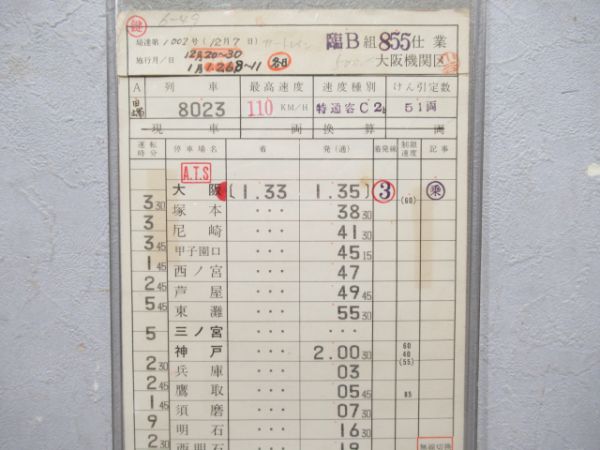 鍵
局達第1003号(12月7日)カートレイン 臨B組855仕業
施行月/日 12月20〜30 大阪機関区
A 列車 最高速度 速度種別 けん引定数
8023 110 KM/H 特通客C2b 51両
現車 両 換算 両
運転時分 停車場名 着 発(通) 着発線 制限速度 記事
A.T.S
大阪 (1.33 1.35) ③ (60) 乗
3 30
塚本 ・・・ 38 30
3
尼崎 ・・・ 41 30
3 45
甲子園口 ・・・ 45 15
1 45
西ノ宮 ・・・ 47
2 45
芦屋 ・・・ 49 45
5 45
東灘 ・・・ 55 30
5
三ノ宮 ・・・ ・・・
神戸 ・・・ 2.00 30 60 40 (55)
2 30
兵庫 ・・・ 03
2 45
鷹取 ・・・ 05 45 85
1 45
須磨 ・・・ 07 30
9
明石 ・・・ 16 30
2 30
西明石 ・・・ 19